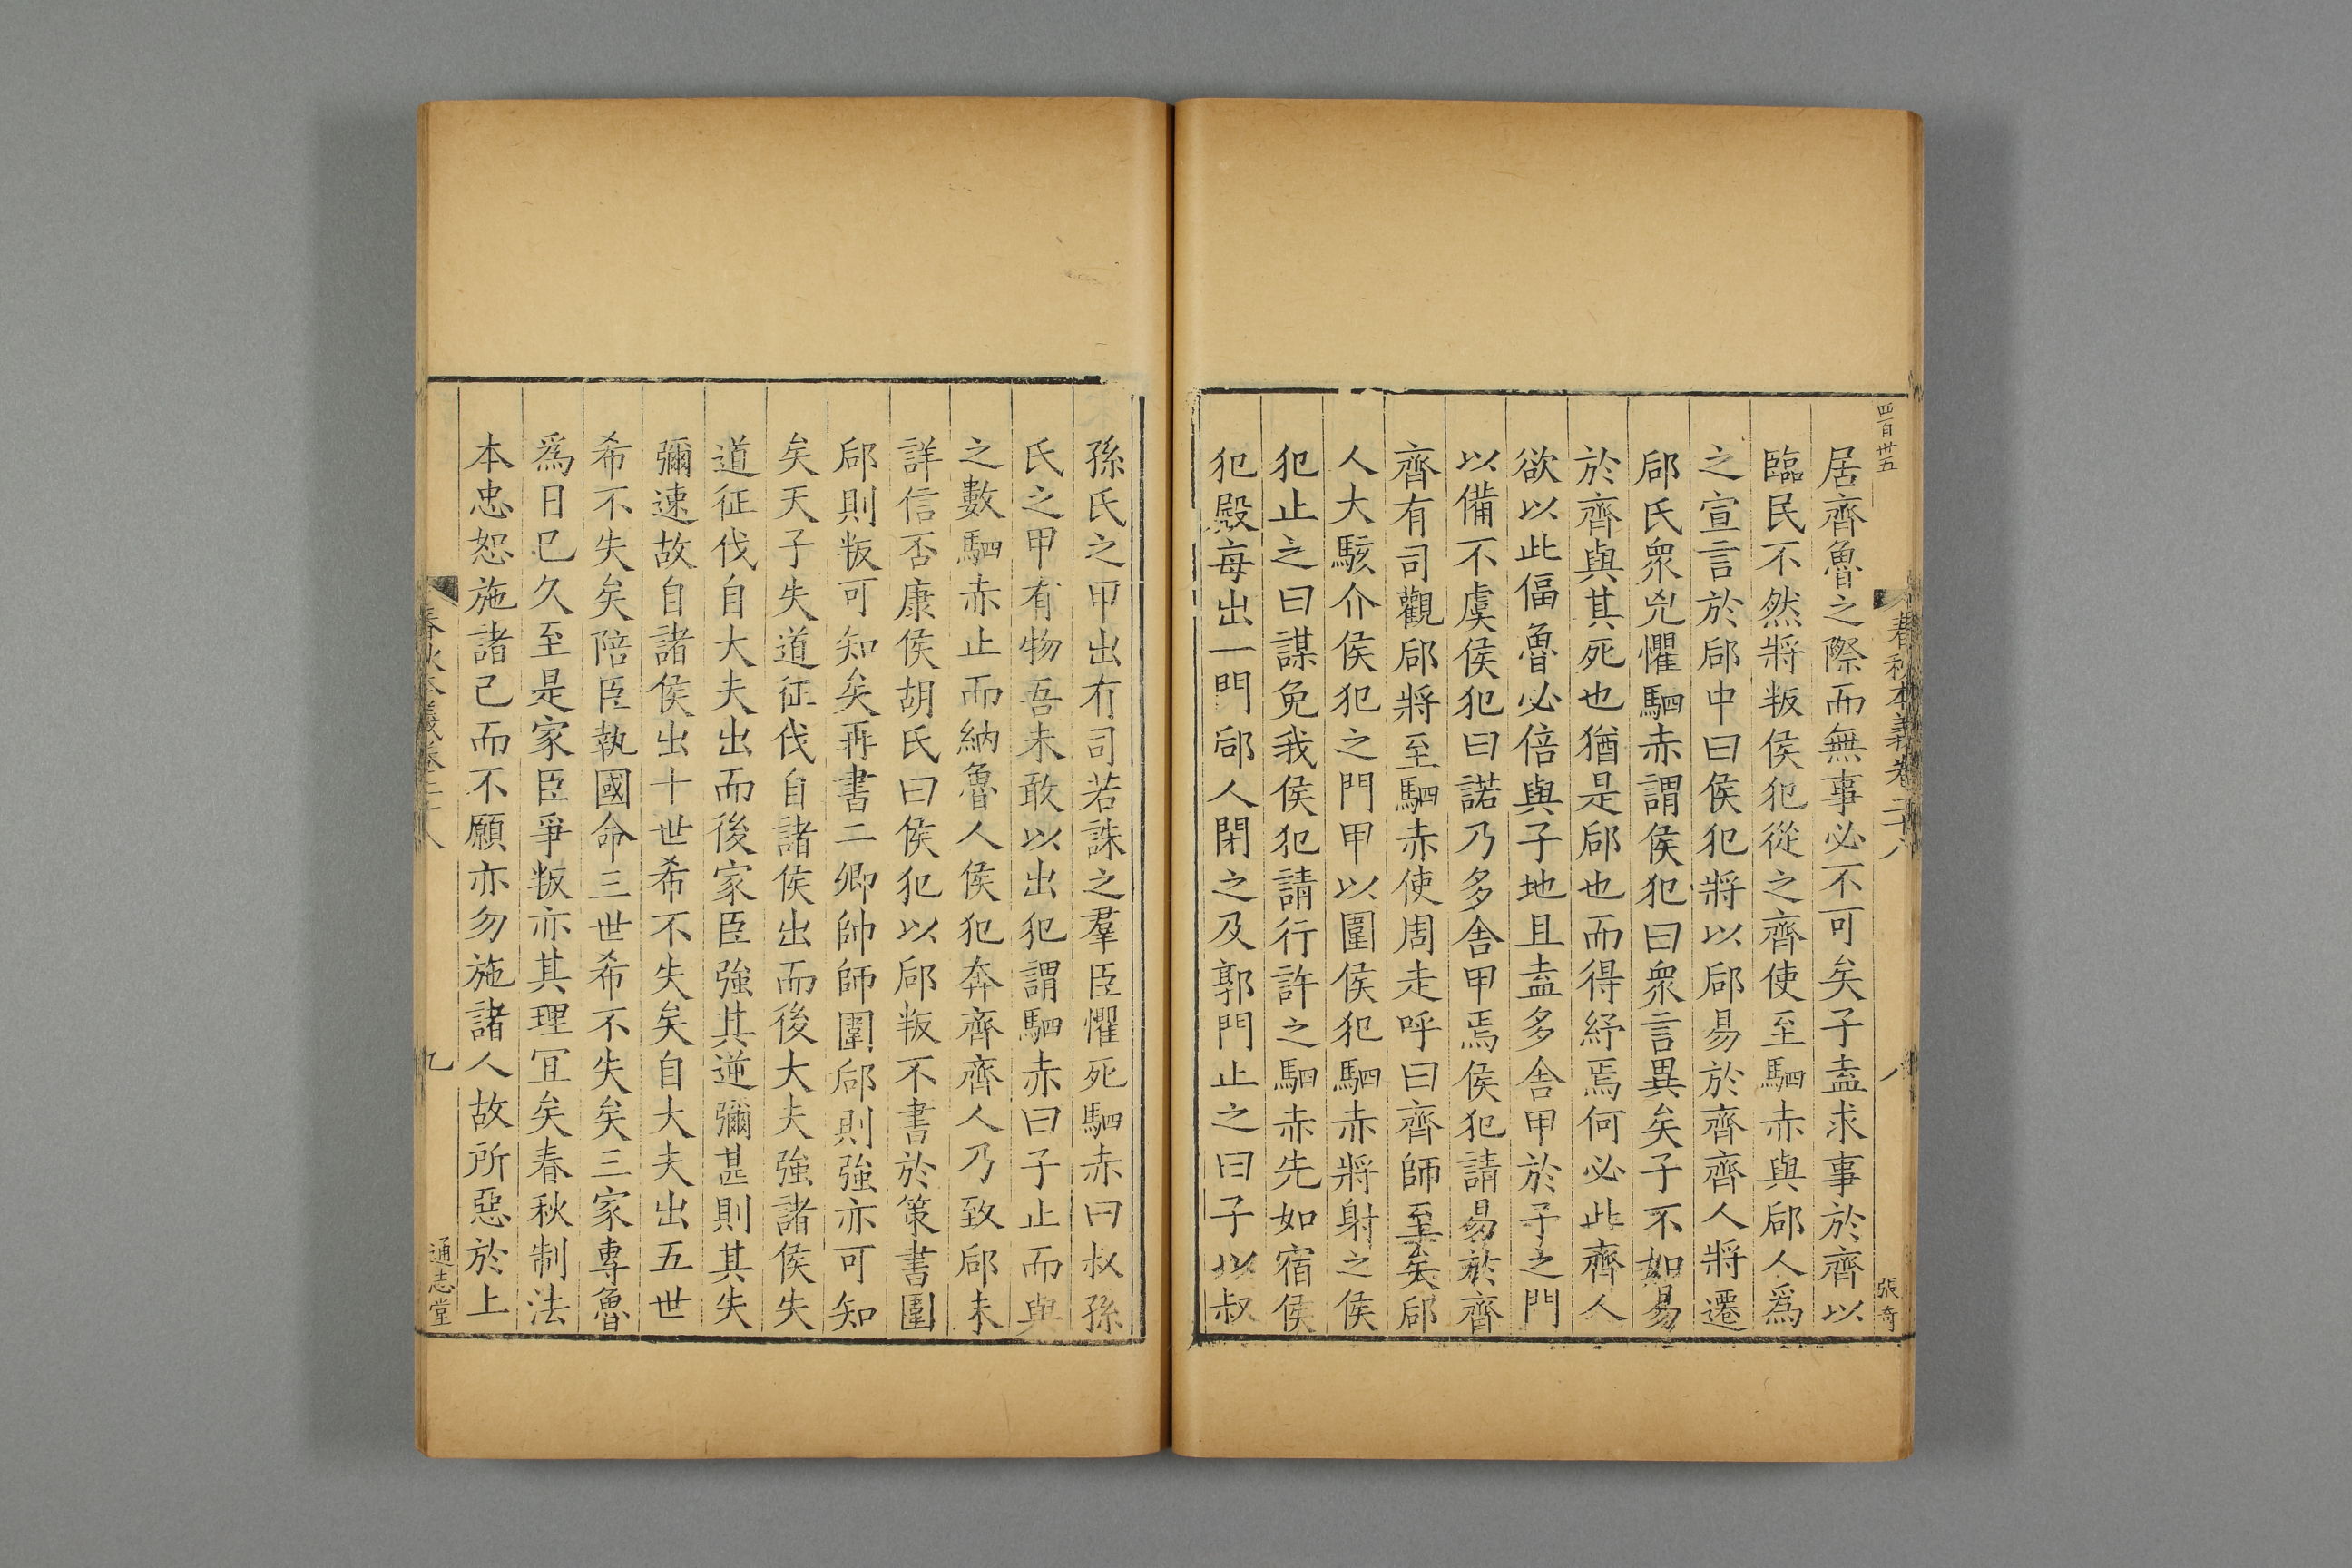 四百卅五
春秋本義卷二十八
八
張奇
居齊魯之際而無事必不可矣子盍求事於齊以
臨民不然將叛侯犯從之齊使至駟赤與郈人爲
之宣言於郈中曰侯犯將以郈易於齊齊人將遷
郈民衆兇懼駟赤謂侯犯曰衆言異矣子不如易
於齊與其死也猶是郈也而得紓焉何必此齊人
欲以此偪魯必倍與子地且盍多舍甲於子之門
以備不虞侯犯曰諾乃多舍甲焉侯犯請易於齊
齊有司觀郈將至駟赤使周走呼曰齊師至矣郈
人大駭介侯犯之門甲以圍侯犯駟赤將射之侯
犯止之曰謀免我侯犯請行許之駟赤先如宿侯
犯殿每出一門郈人閉之及郭門止之曰子以叔
孫氏之甲出有司若誅之羣臣懼死駟赤曰叔孫
氏之甲有物吾未敢以出犯謂駟赤曰子止而與
之數駟赤止而納魯人侯犯奔齊齊人乃致郈未
詳信否康侯胡氏曰侯犯以郈叛不書於策書圍
郈則叛可知矣再書二卿帥師圍郈則強亦可知
矣天子失道征伐自諸侯出而後大夫強諸侯失
道征伐自大夫出而後家臣強其逆彌甚則其失
彌速故自諸侯出十世希不失矣自大夫出五世
希不失矣陪臣執國命三世希不失矣三家專魯
爲日已久至是家臣爭叛亦其理宜矣春秋制法
本忠恕施諸己而不願亦勿施諸人故所惡於上
春秋本義卷二十八
九
通志堂